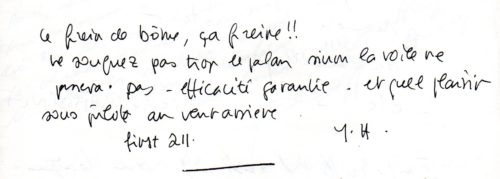 Ce frein de bôme, ça freine!!
Ne souquez pas trop le palan sinon la voile ne
passera pas - efficacité garantie. et quel plaisir
sous pilote au vent arrière
first 211.
Y. H.